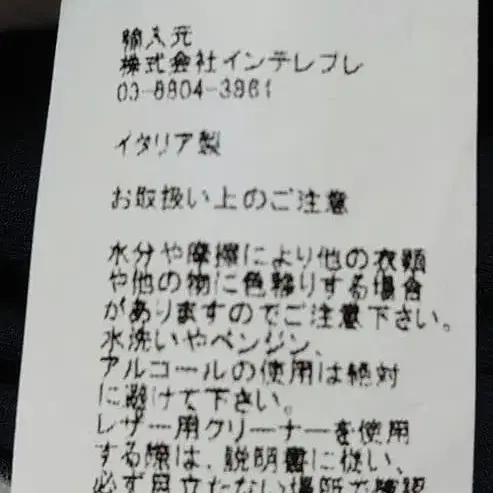 輸入元
株式会社インテレプレ
03-6804-3861
イタリア製
お取扱い上のご注意
水分や摩擦により他の衣類
や他の物に色移りする場合
がありますのでご注意下さい。
水洗いやベンジン、
アルコールの使用は絶対
に避けて下さい。
レザー用クリーナーを使用
する際は、説明書に従い、
必ず目立たない場所で確認